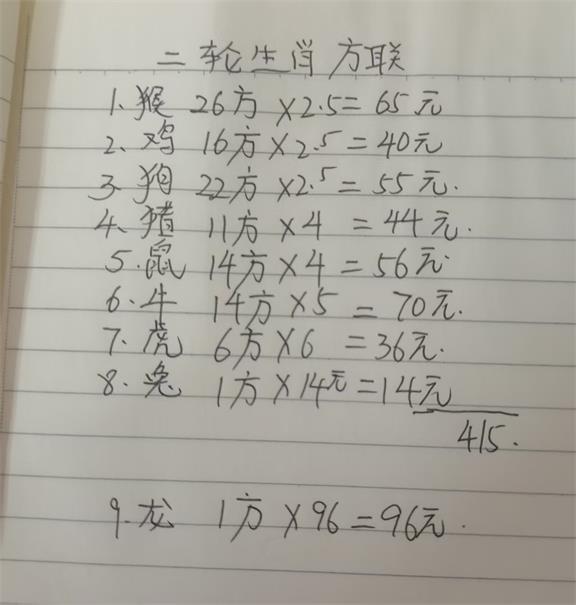 二轮生肖方联
1、猴 26方×2.5=65元
2、鸡 16方×2.5=40元
3、狗 22方×2.5=55元.
4、猪 11方×4=44元.
5.鼠 14方×4=56元.
6、牛 14方×5=70元.
7、虎 6方×6=36元.
8、兔 1方×14元=14元
415.
9.龙 1方×96=96元.